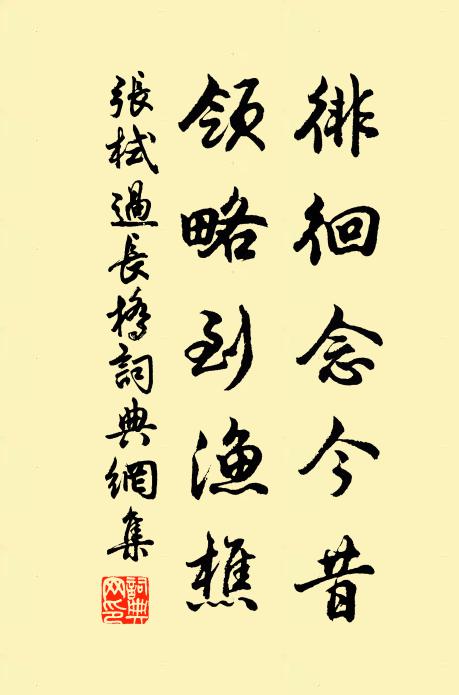 徘徊念今昔
領略到漁樵
張栻過長橋詞典網集
詞典網印